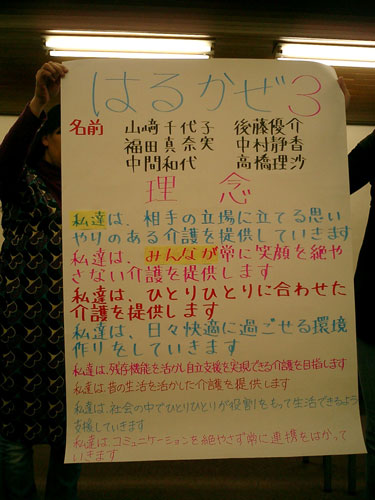 はるかぜ3
名前 山﨑千代子 後藤優介
福田真奈実 中村静香
中間和代 高橋理沙
理念
私達は、相手の立場に立てる思い
やりのある介護を提供していきます
私達は、みんなが常に笑顔を絶や
さない介護を提供します
私達は、ひとりひとりに合わせた
介護を提供します
私達は、日々快適に過ごせる環境
作りをしていきます
私達は、残存機能を活かし自立支援を実現できる介護を目指します
私達は、昔の生活を活かした介護を提供します
私達は、社会の中でひとりひとりが役割をもって生活できるよう
支援していきます
私達は、コミュニケーションを絶やさず常に連携をはかって
いきます